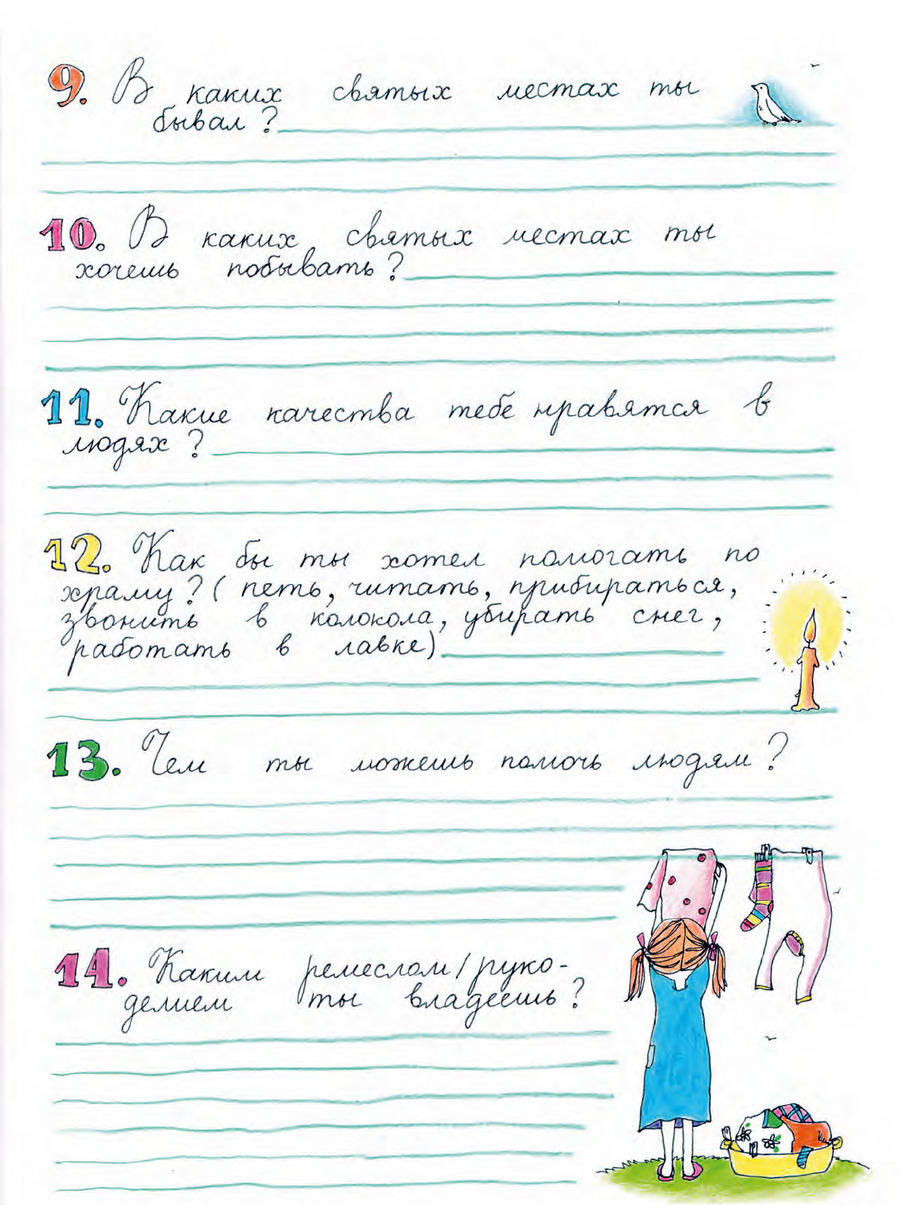 9. В каких святых местах ты
бывал?
10. В каких святых местах ты
хочешь побывать?
11. Какие качества тебе нравятся в
людях?
12. Как бы ты хотел помогать по
храму? (петь, читать, прибираться,
звонить в колокола, убирать снег,
работать в лавке)
13. Чем ты можешь помочь людям?
14. Каким ремеслом/руко-
делием ты владеешь?